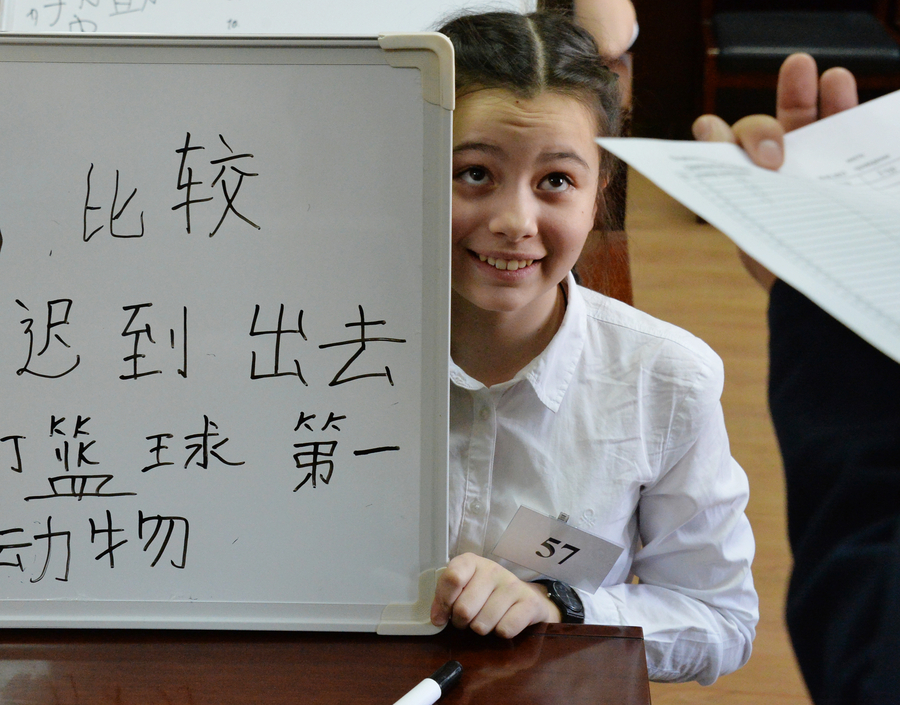 比较
迟到 出去
打篮球 第一
动物
57